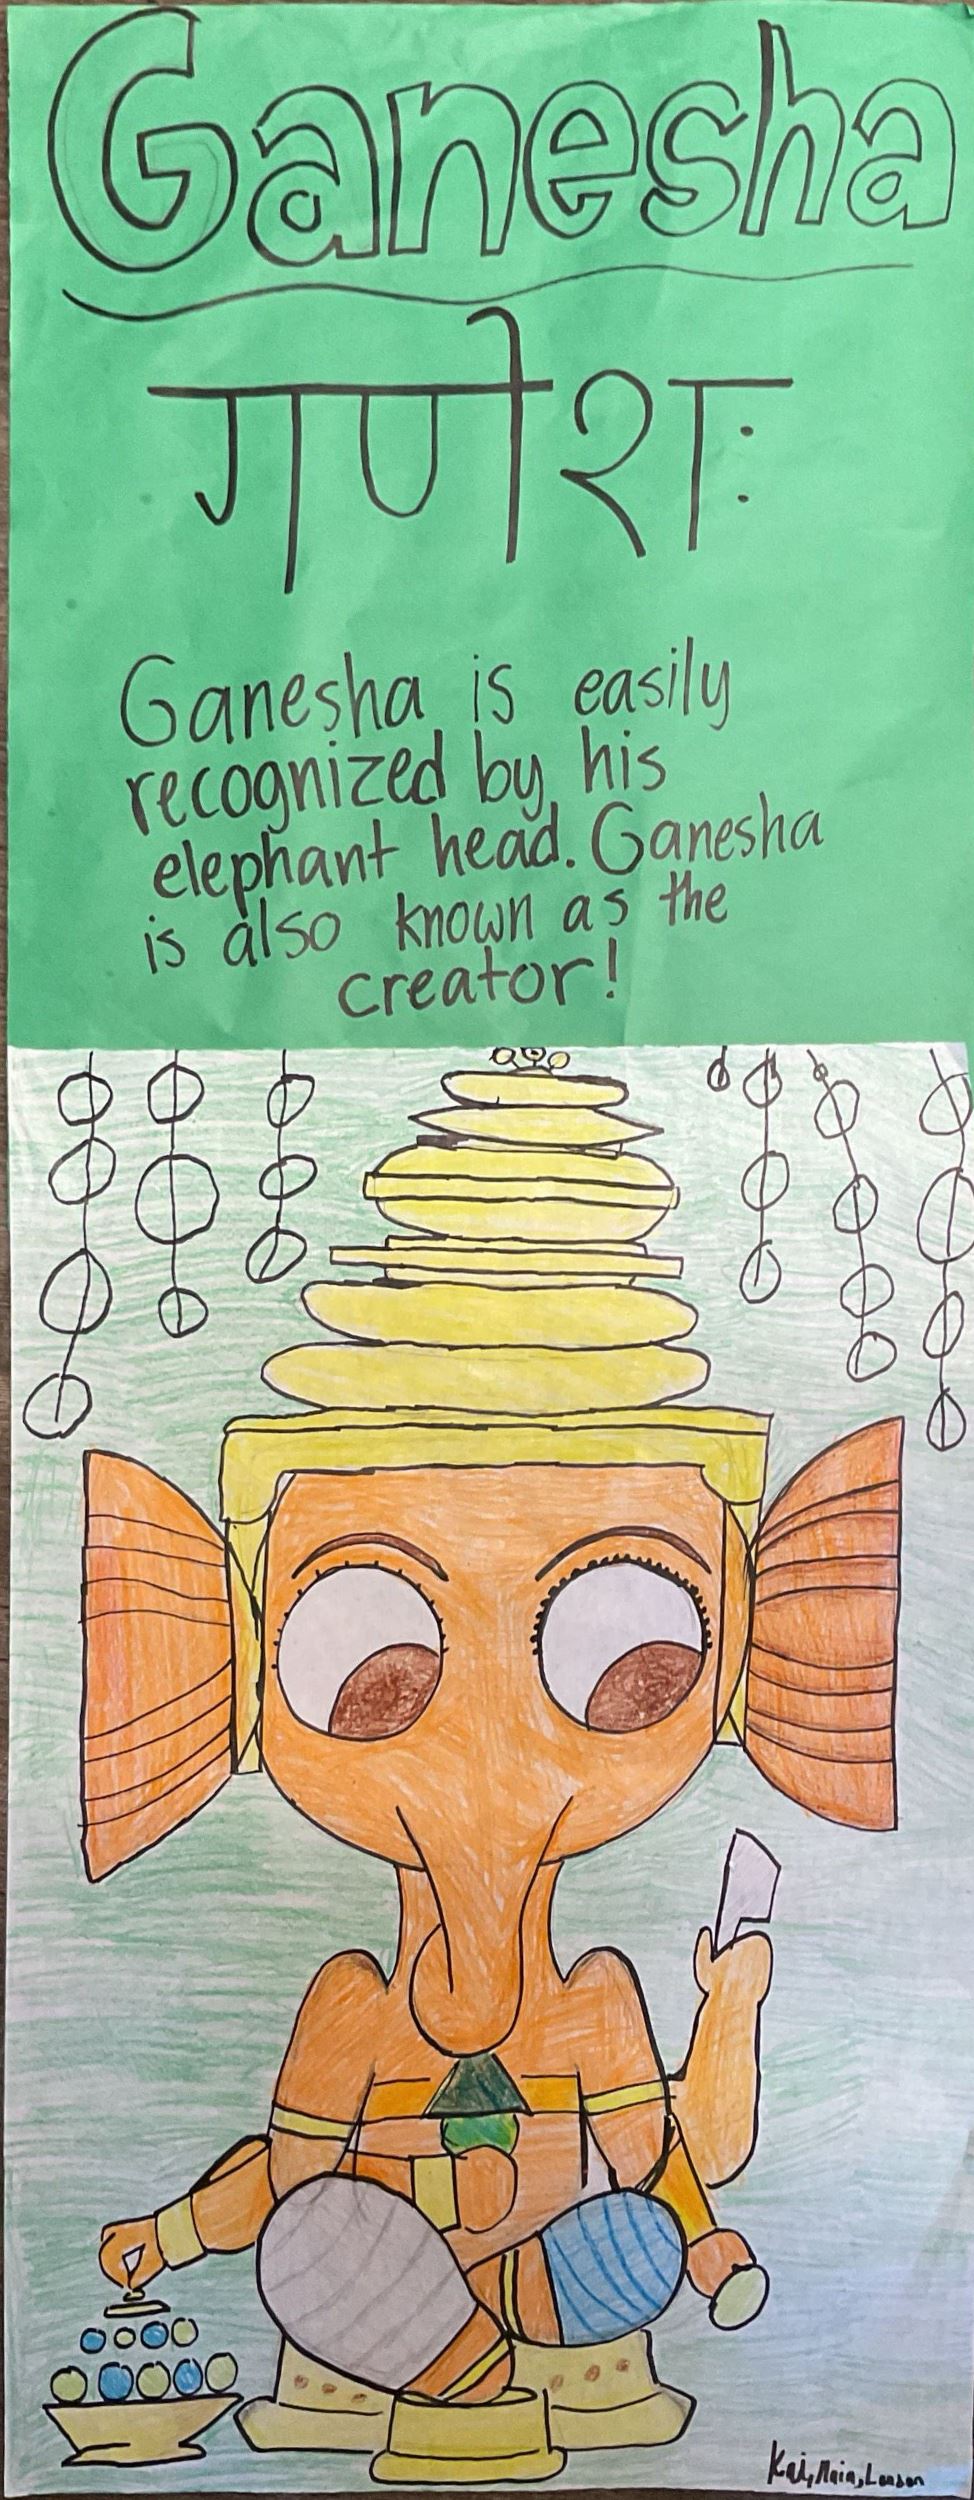 Ganesha
गणेशः
Ganesha is easily
recognized by his
elephant head. Ganesha
is also known as the
creator!
Kai, Maia, London